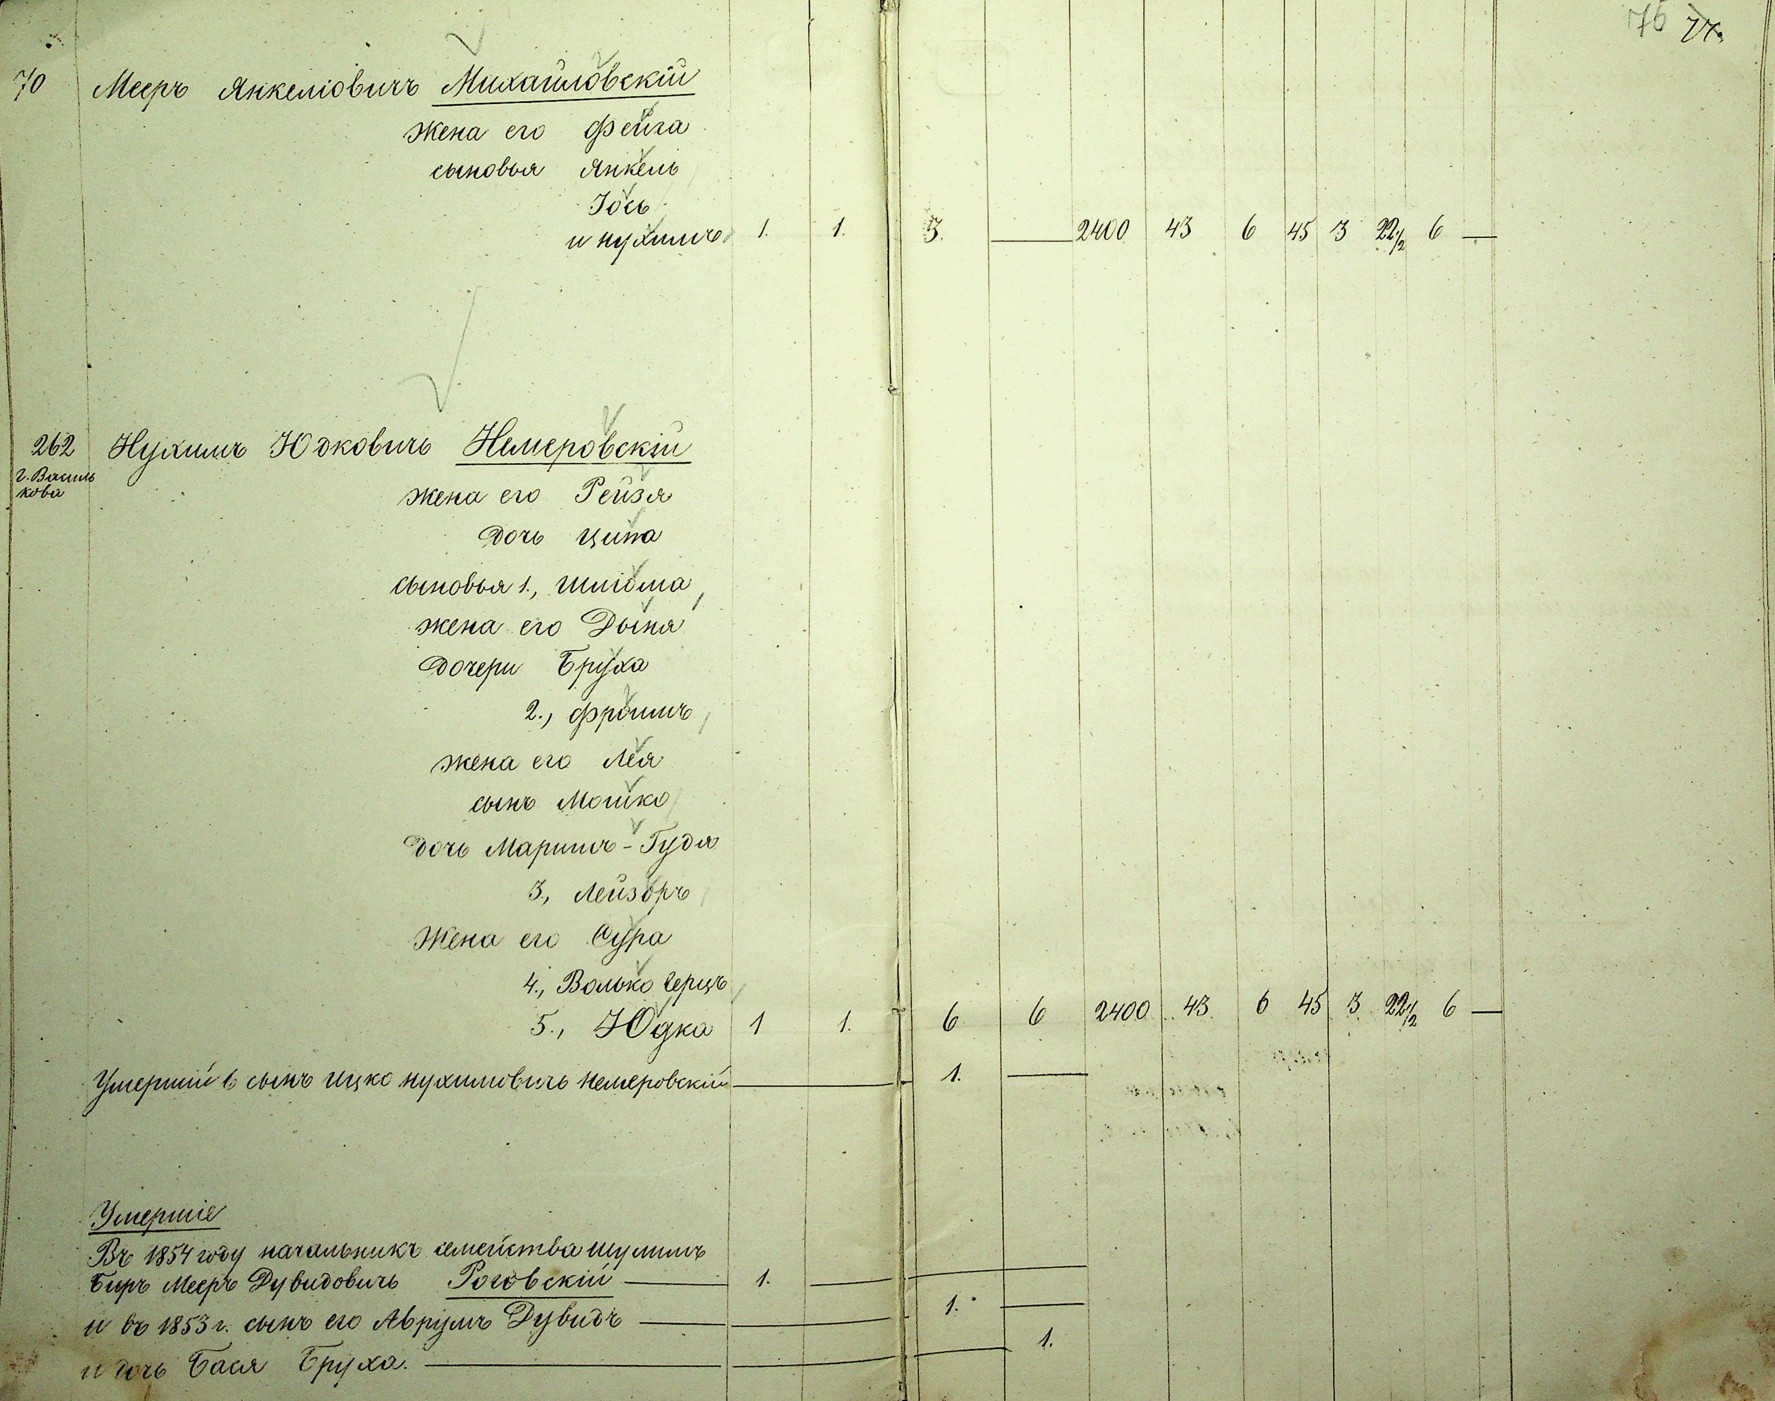 76 77.
70 Мееръ Янкеліовичъ Михайловскій
жена его Фейга
сыновья Янкель
Іось
и Нухимъ 1. 1. 3. — 2400 43 6 45 3 22 1/2 6 —
262 Нухимъ Юдковичъ Немеровскій
г. Василь
кова
жена его Рейзя
дочь Ципа
сыновья 1., Шліома
жена его Дыня
дочери Бруха
2., Фроимъ
жена его Лея
сынъ Мошко
дочь Маримъ-Гудя
3., Лейзоръ
Жена его Сура
4., Волько Герцъ
5., Юдка 1 1. 6 6 2400 43 6 45 3 22 1/2 6 —
Умершій 6 сынъ Ицко Нухимовичъ Немеровскій — 1. —
Умершіе
Въ 1854 году начальникъ семейства Шулимъ
Беръ Мееръ Дувидовичъ Роговскій — 1. —
и въ 1853 г. сынъ его Аврумъ Дувидъ — 1. —
и дочь Бася Бруха. — 1.